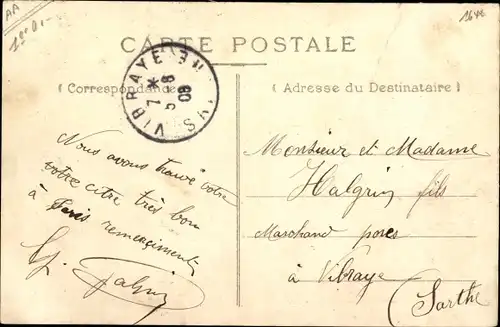 AA
1er 01-
164e
CARTE POSTALE
VIBRAYE
7 *
5 - 8
09
( Correspondance
( Adresse du Destinataire )
Nous avons trouvé votre
votre citre très bon
à Paris remerciments
G. Halgrin
Monsieur et Madame
Halgrin fils
Marchand porcs
à Vibraye
Sarthe